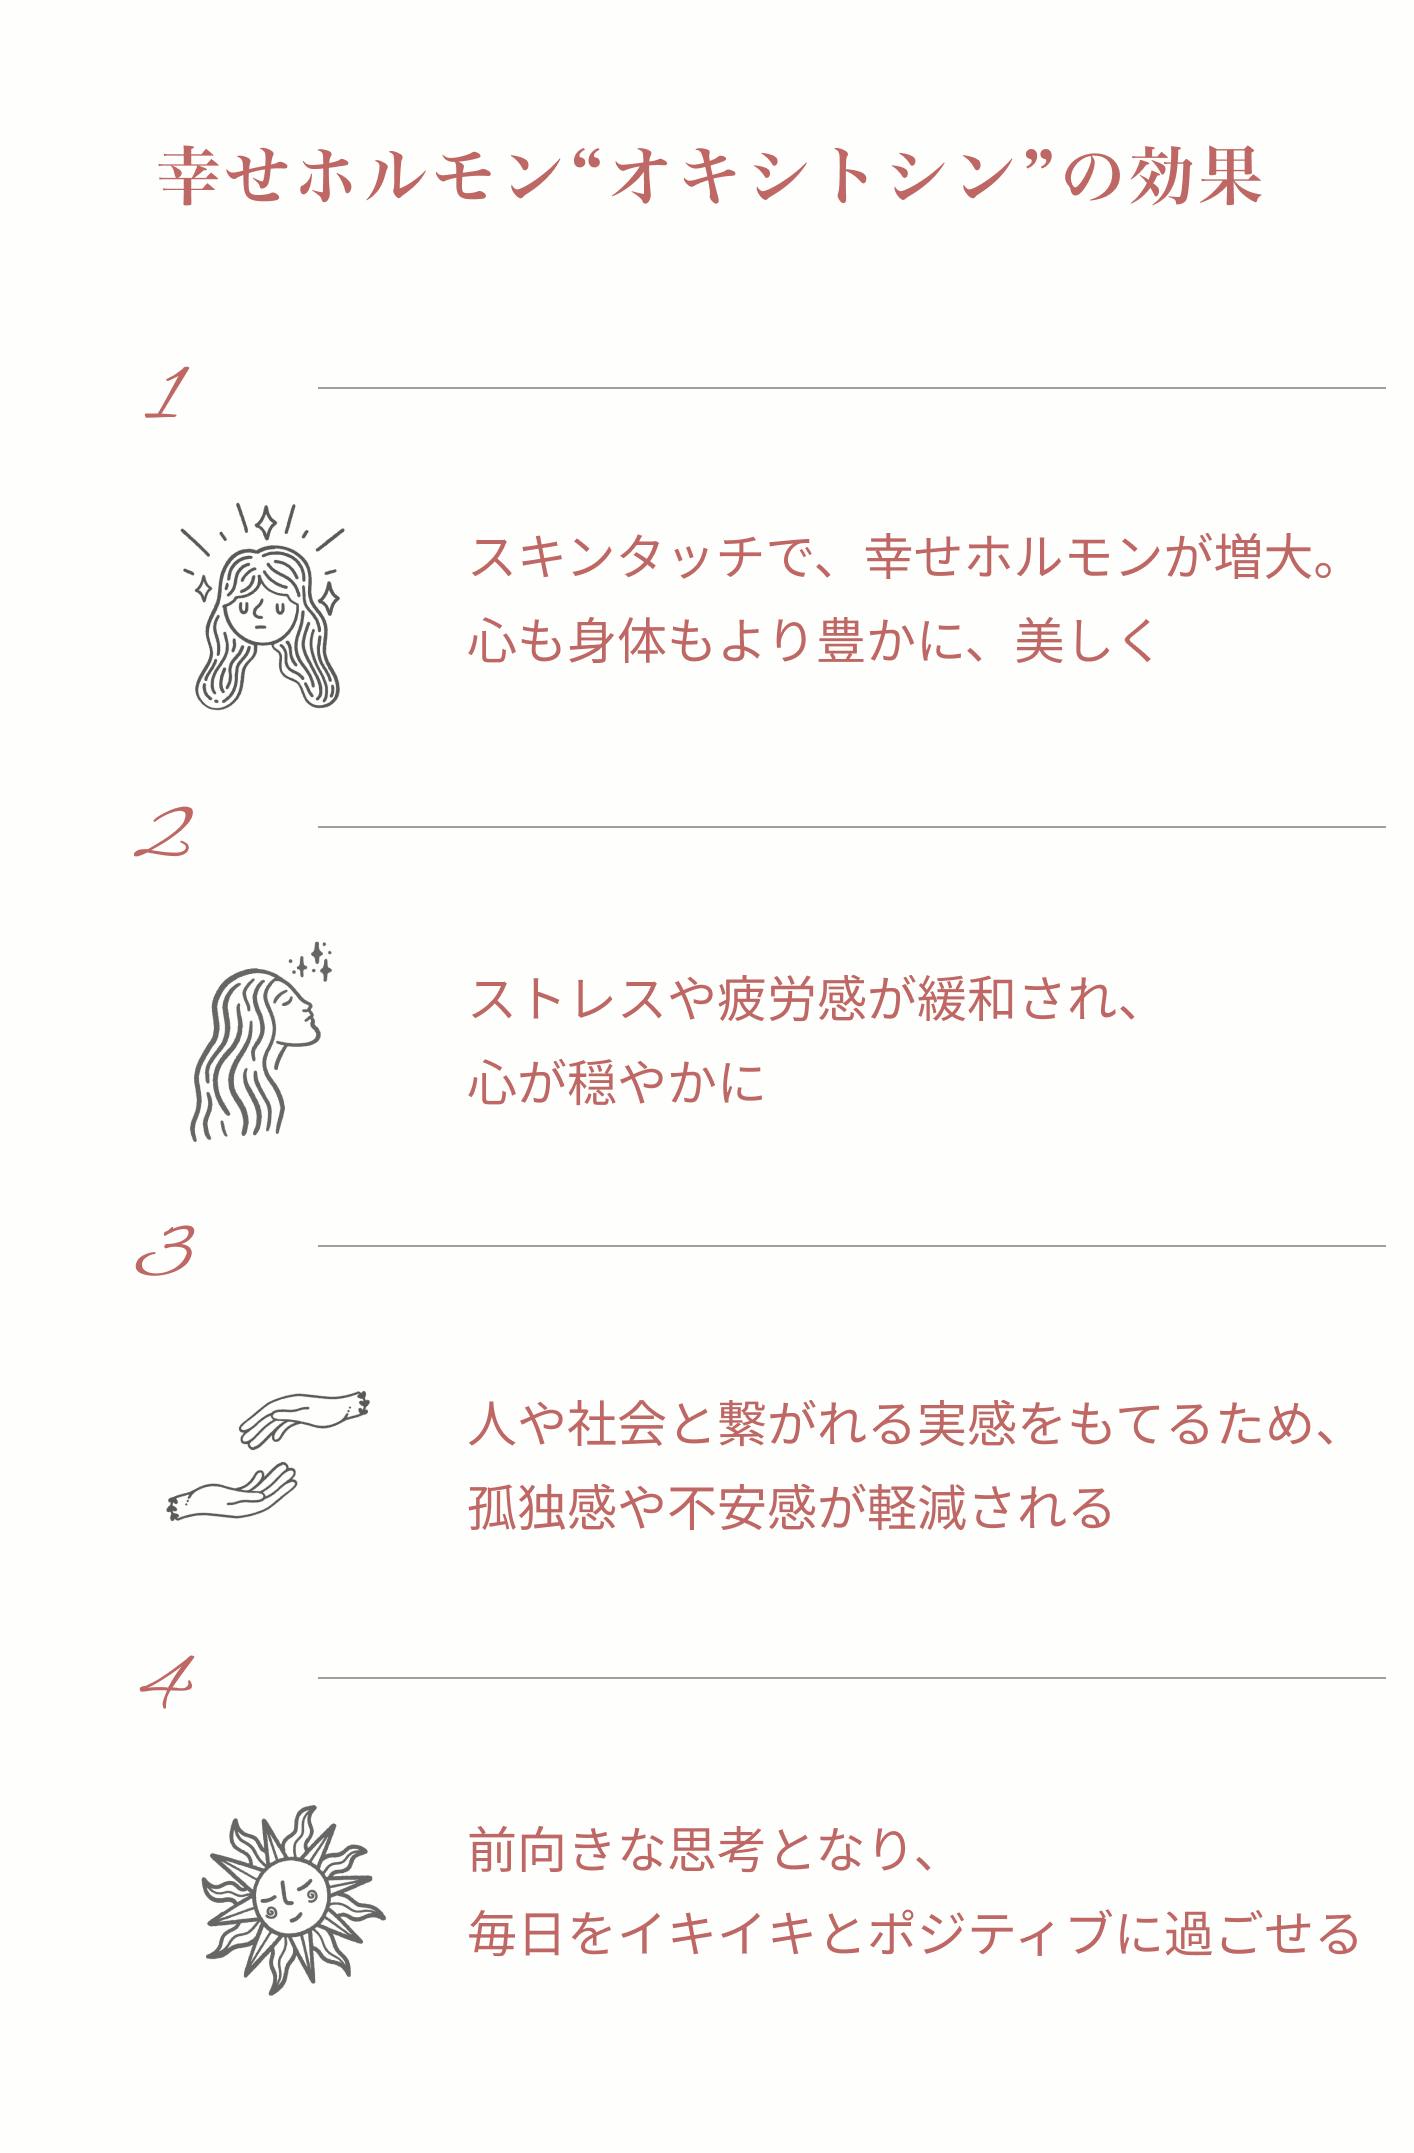 幸せホルモン“オキシトシン”の効果
1
スキンタッチで、幸せホルモンが増大。
心も身体もより豊かに、美しく
2
ストレスや疲労感が緩和され、
心が穏やかに
3
人や社会と繋がれる実感をもてるため、
孤独感や不安感が軽減される
4
前向きな思考となり、
毎日をイキイキとポジティブに過ごせる